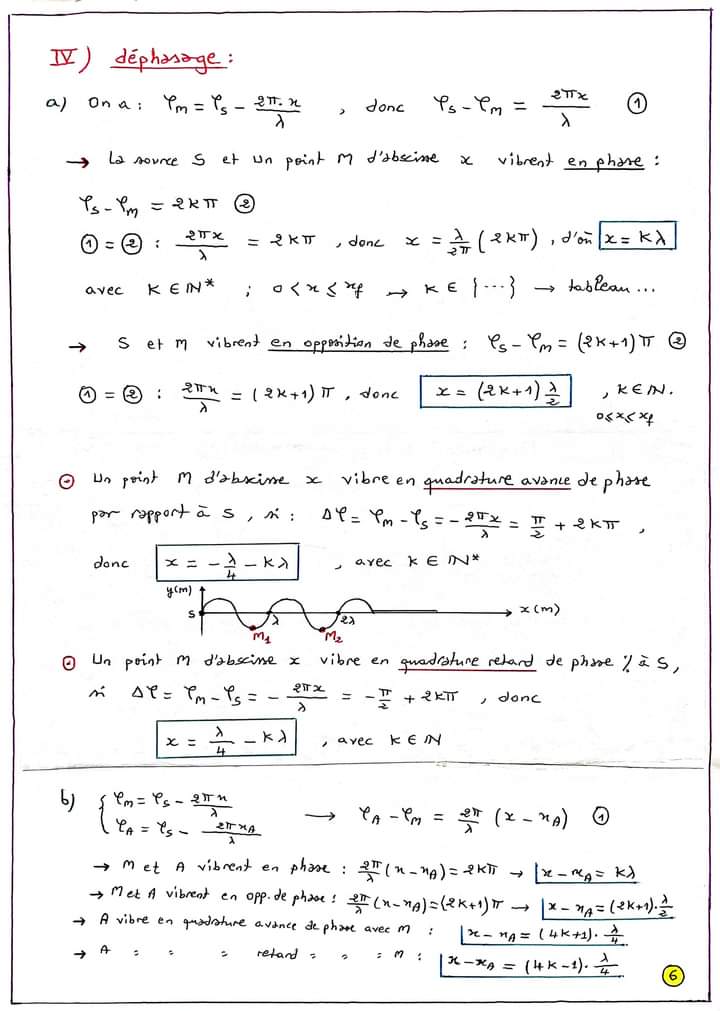 IV) déphasage :
a) On a : φ_M = φ_S - 2π.x/λ , donc φ_S - φ_M = 2πx/λ ①
→ La source S et un point M d'abscisse x vibrent en phase :
φ_S - φ_M = 2kπ ②
① = ② : 2πx/λ = 2kπ , donc x = λ/2π (2kπ) , d'où x = kλ
avec k ∈ ℕ* ; 0 < x ≤ x_f → k ∈ {...} → tableau ...
→ S et M vibrent en opposition de phase : φ_S - φ_M = (2k+1)π ②
① = ② : 2πx/λ = (2k+1)π , donc x = (2k+1) λ/2 , k ∈ ℕ.
0 ≤ x ≤ x_f
Un point M d'abscisse x vibre en quadrature avance de phase
par rapport à S , si : Δφ = φ_M - φ_S = - 2πx/λ = π/2 + 2kπ ,
donc x = - λ/4 - kλ , avec k ∈ ℕ*
y(m)
S λ 2λ x(m)
M₁ M₂
Un point M d'abscisse x vibre en quadrature retard de phase % à S,
si Δφ = φ_M - φ_S = - 2πx/λ = - π/2 + 2kπ , donc
x = λ/4 - kλ , avec k ∈ ℕ
b) { φ_M = φ_S - 2πx/λ
φ_A = φ_S - 2πx_A/λ → φ_A - φ_M = 2π/λ (x - x_A) ①
→ M et A vibrent en phase : 2π/λ (x - x_A) = 2kπ → x - x_A = kλ
→ M et A vibrent en opp. de phase : 2π/λ (x - x_A) = (2k+1)π → x - x_A = (2k+1).λ/2
→ A vibre en quadrature avance de phase avec M : x - x_A = (4k+1).λ/4
→ A " " " retard " " " M : x - x_A = (4k-1).λ/4
6